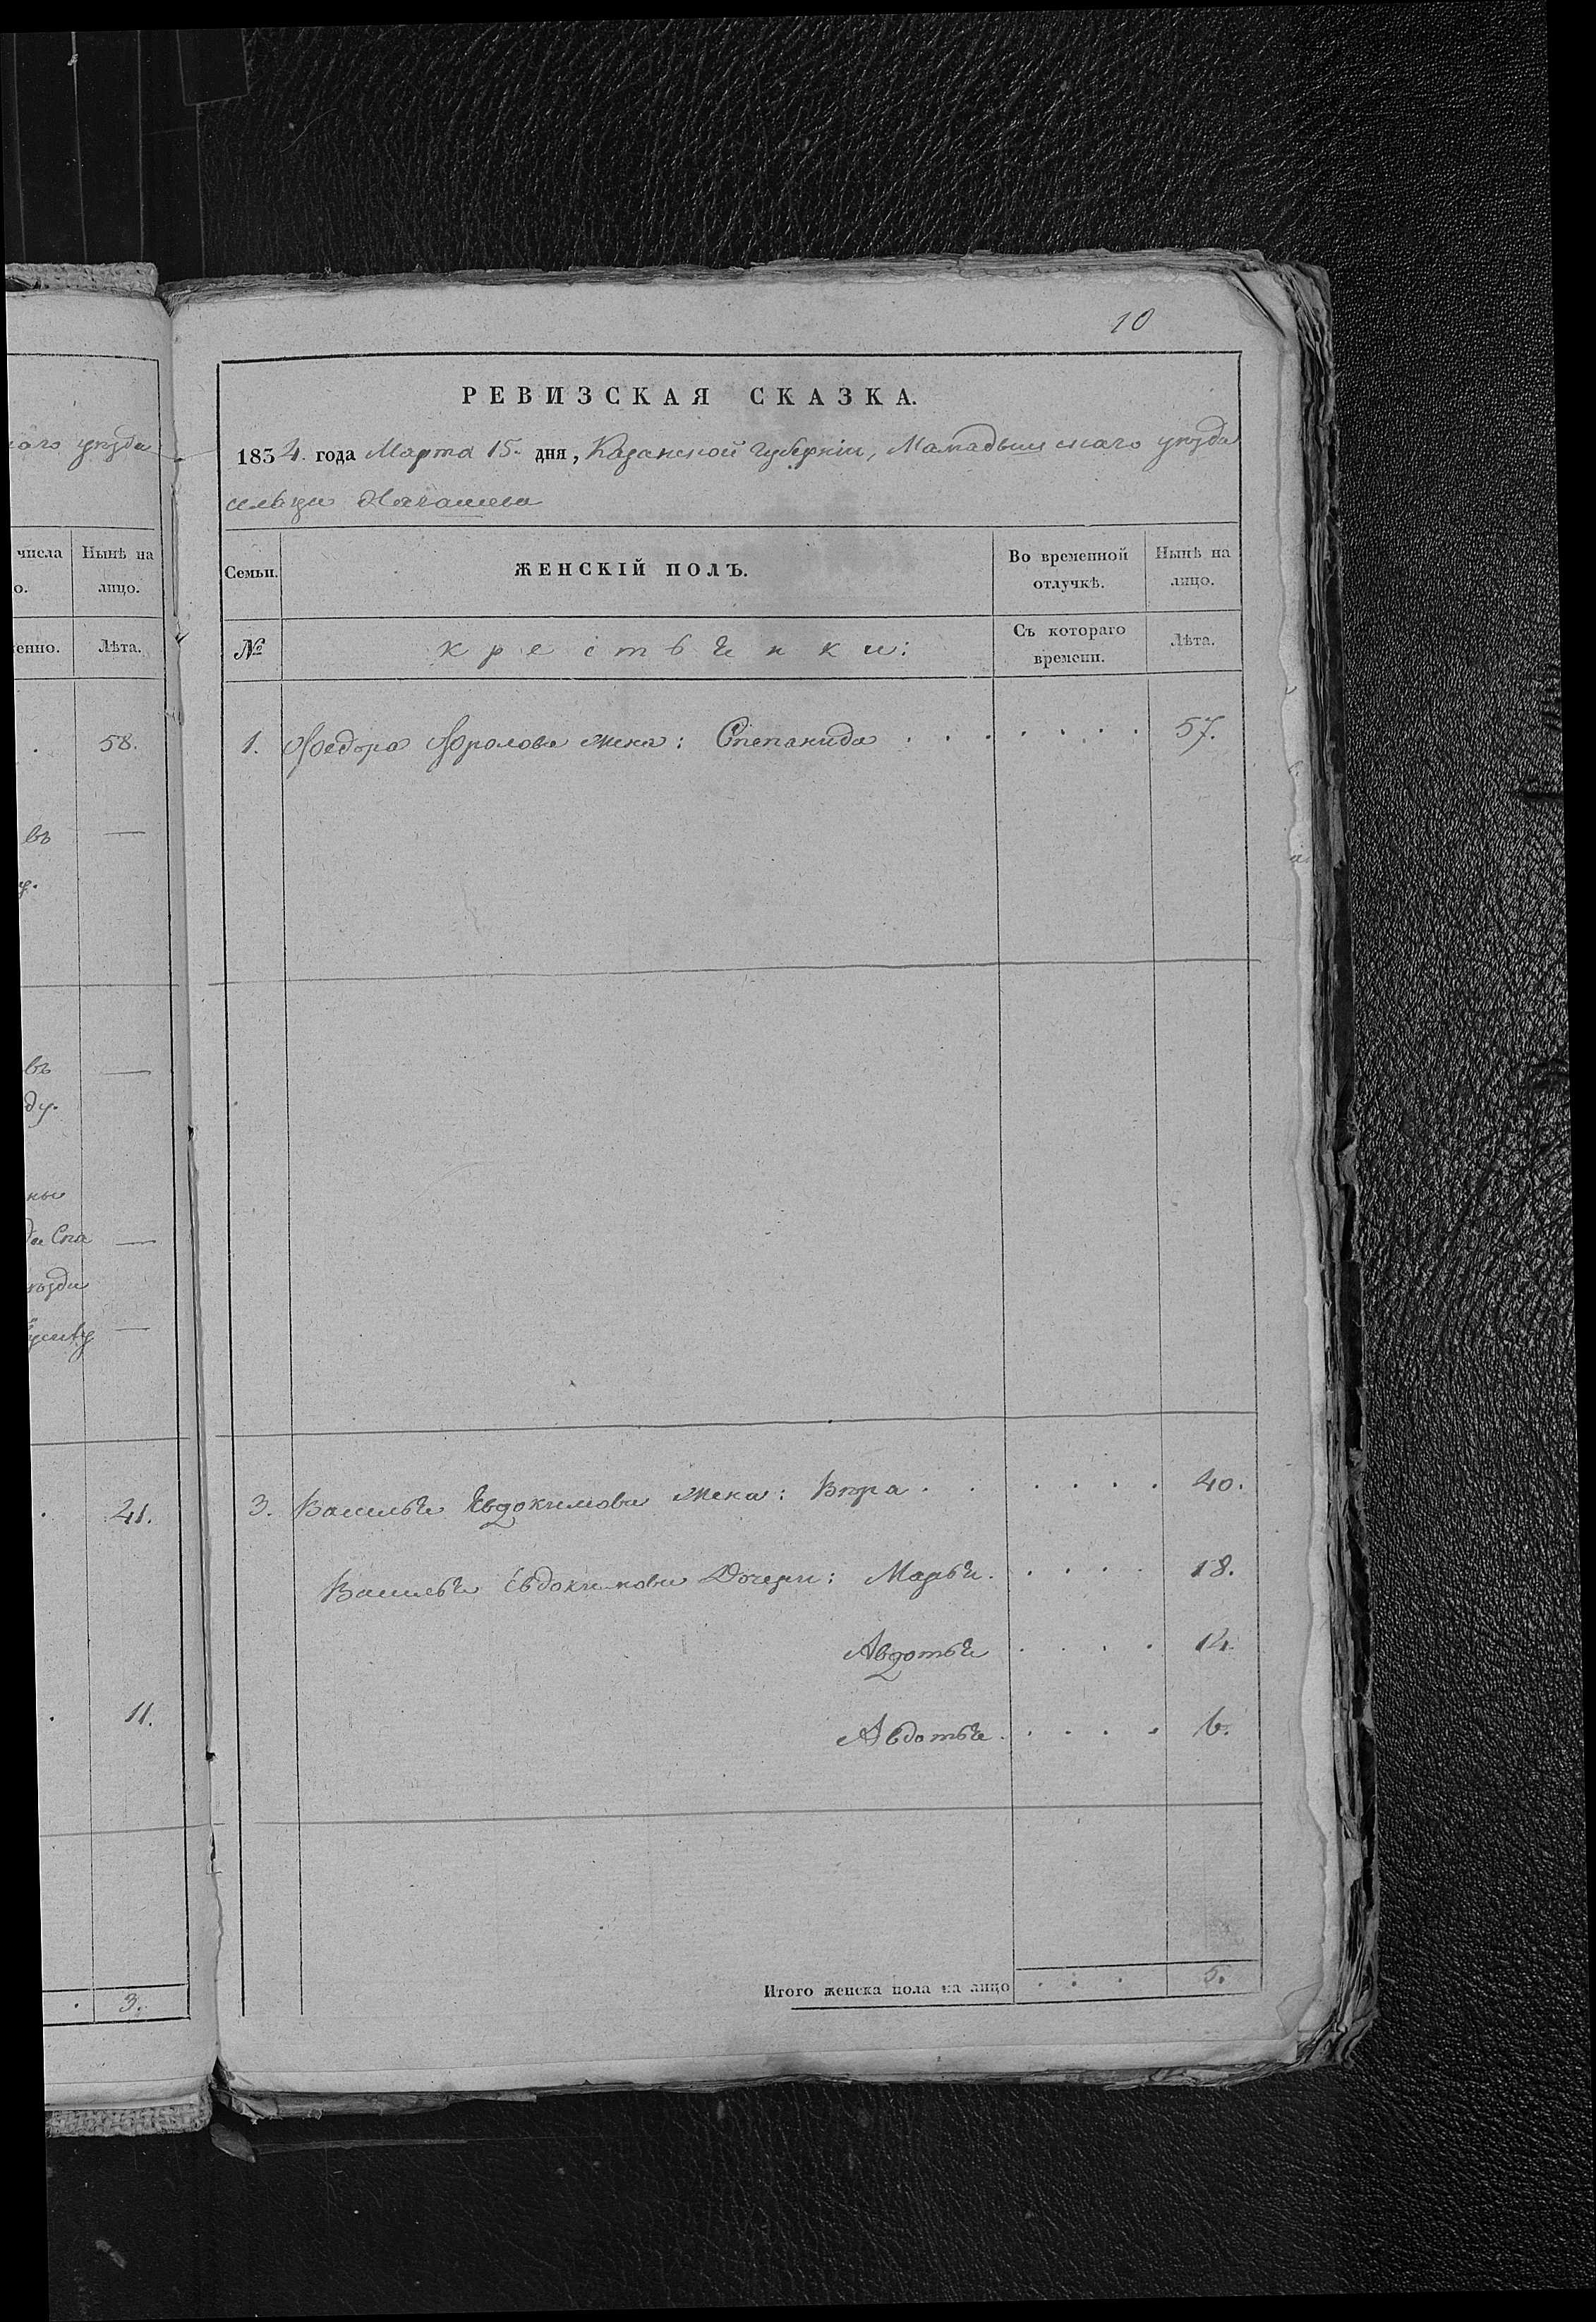 10
РЕВИЗСКАЯ СКАЗКА.
1834. года Марта 15. дня, Казанской Губернiи, Мамадышскаго уѣзда
сельца
Семьи. ЖЕНСКІЙ ПОЛЪ. Во временной отлучкѣ. Нынѣ на лицо.
№ крестьянки: Съ котораго времени. Лѣта.
1. Ѳедора Фролова жена: Степанида . . . . . . . 57.
3. Василья Евдокимова жена: Вѣра . . . . . . 40.
Василья Евдокимова Дочери: Марья . . . . . 18.
Авдотья . . . . 12.
Авдотья . . . . . 6.
Итого женска пола на лицо . . . 5.
аго уѣзда
числа Нынѣ на
о. лицо.
енно. Лѣта.
. 58.
въ —
въ —
ду.
ны
да Спа —
ѣзда
—
. 41.
. 11.
. 3.